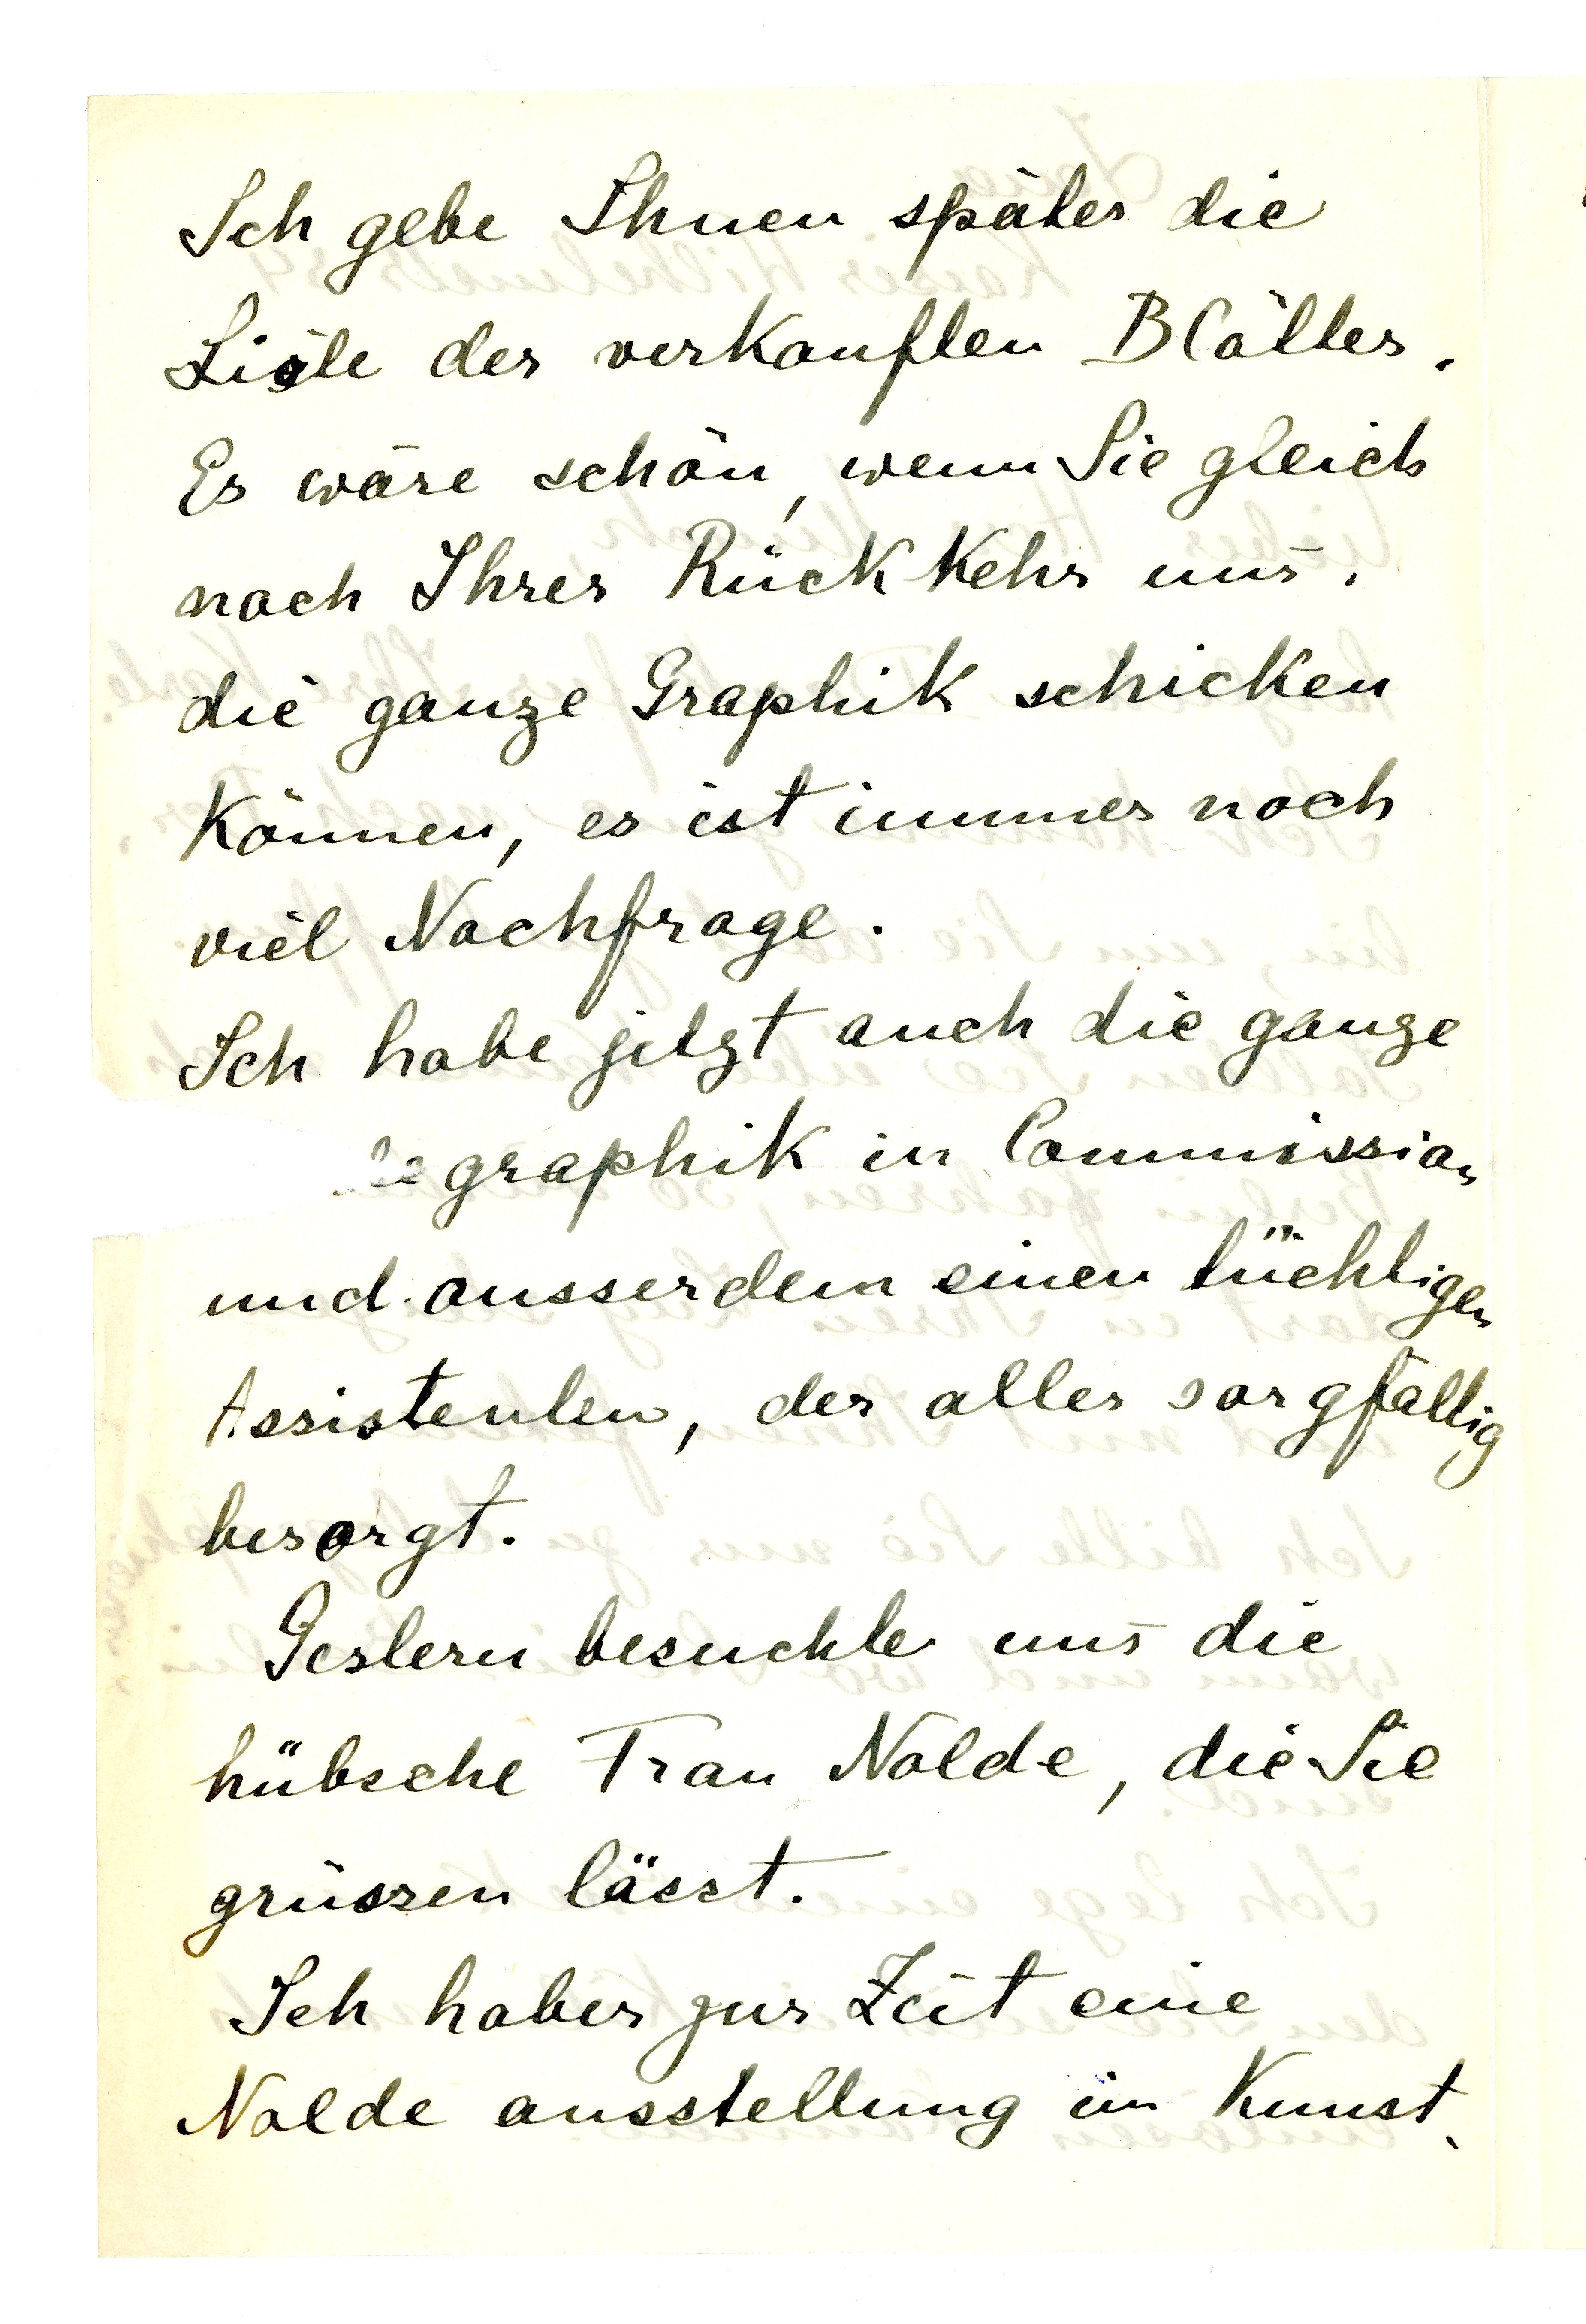 Ich gebe Ihnen später die
Liste der verkauften Blätter.
Es wäre schön, wenn Sie gleich
nach Ihrer Rückkehr uns
die ganze Graphik schicken
können, es ist immer noch
viel Nachfrage.
Ich habe jetzt auch die ganze
graphik in Commission
und ausserdem einen tüchtigen
Assistenten, der alles sorgfältig
besorgt.
Gestern besuchte uns die
hübsche Frau Nolde, die Sie
grüssen lässt.
Ich haber zur Zeit eine
Nolde ausstellung im Kunst